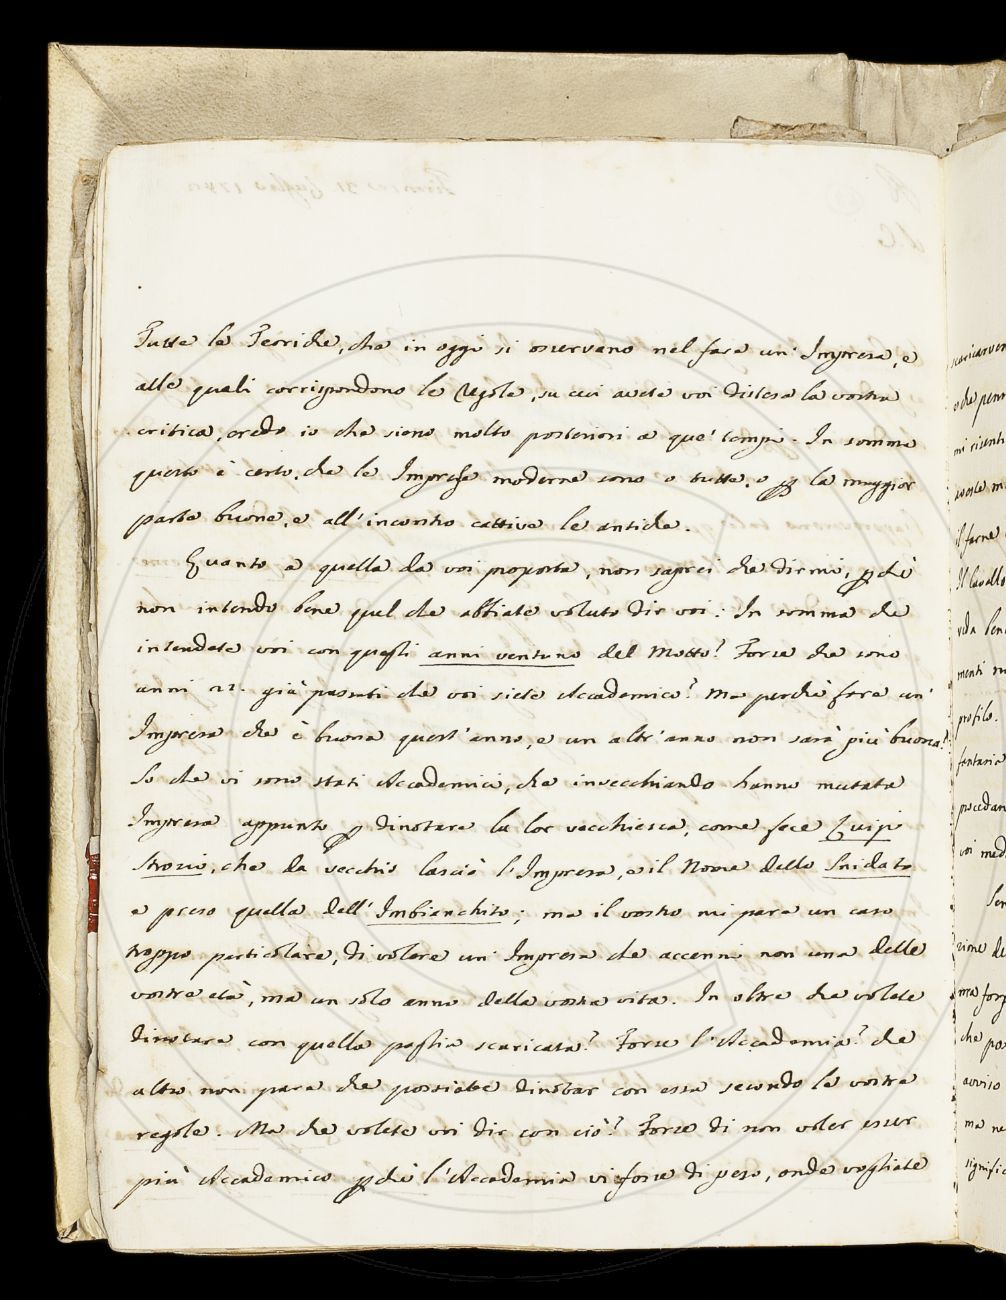 Tutte le Teoriche, che in oggi si osservano nel fare un' Impresa, e
alle quali corrispondono le Regole, su cui avete voi distesa la vostra
critica, credo io che sieno molto posteriori a que' tempi. In somma
questo è certo, che le Imprese moderne sono o tutte, o p la maggior
parte buone, e all' incontro cattive le antiche.
Quanto a quella da voi proposta, non saprei che dirmi, pchè
non intendo bene quel che abbiate voluto dir voi: In somma che
intendete voi con quegli anni ventuno del Motto? Forse che sono
anni 21. già passati che voi siete Accademico? Ma perchè fare un'
Impresa che è buona quest' anno, e un altr' anno non sarà più buona?
So che vi sono stati Accademici, che invecchiando hanno mutata
Impresa appunto p dinotare la lor vecchiezza, come fece Luigi
Strozzi, che da vecchio lasciò l' Impresa, e il Nome dello
e prese quella dell' Imbianchito; ma il vostro mi pare un caso
troppo particolare, di volere un' Impresa che accenni non una delle
vostre età, ma un solo anno della vostra vita. In oltre che volete
dinotare con quella paglia scaricata? Forse l' Accademia? che
altro non pare che possiate dinotar con essa secondo le vostre
regole. Ma che volete voi dir con ciò? Forse di non voler esser
più Accademico pchè l' Accademia vi fosse di peso, onde vogliate